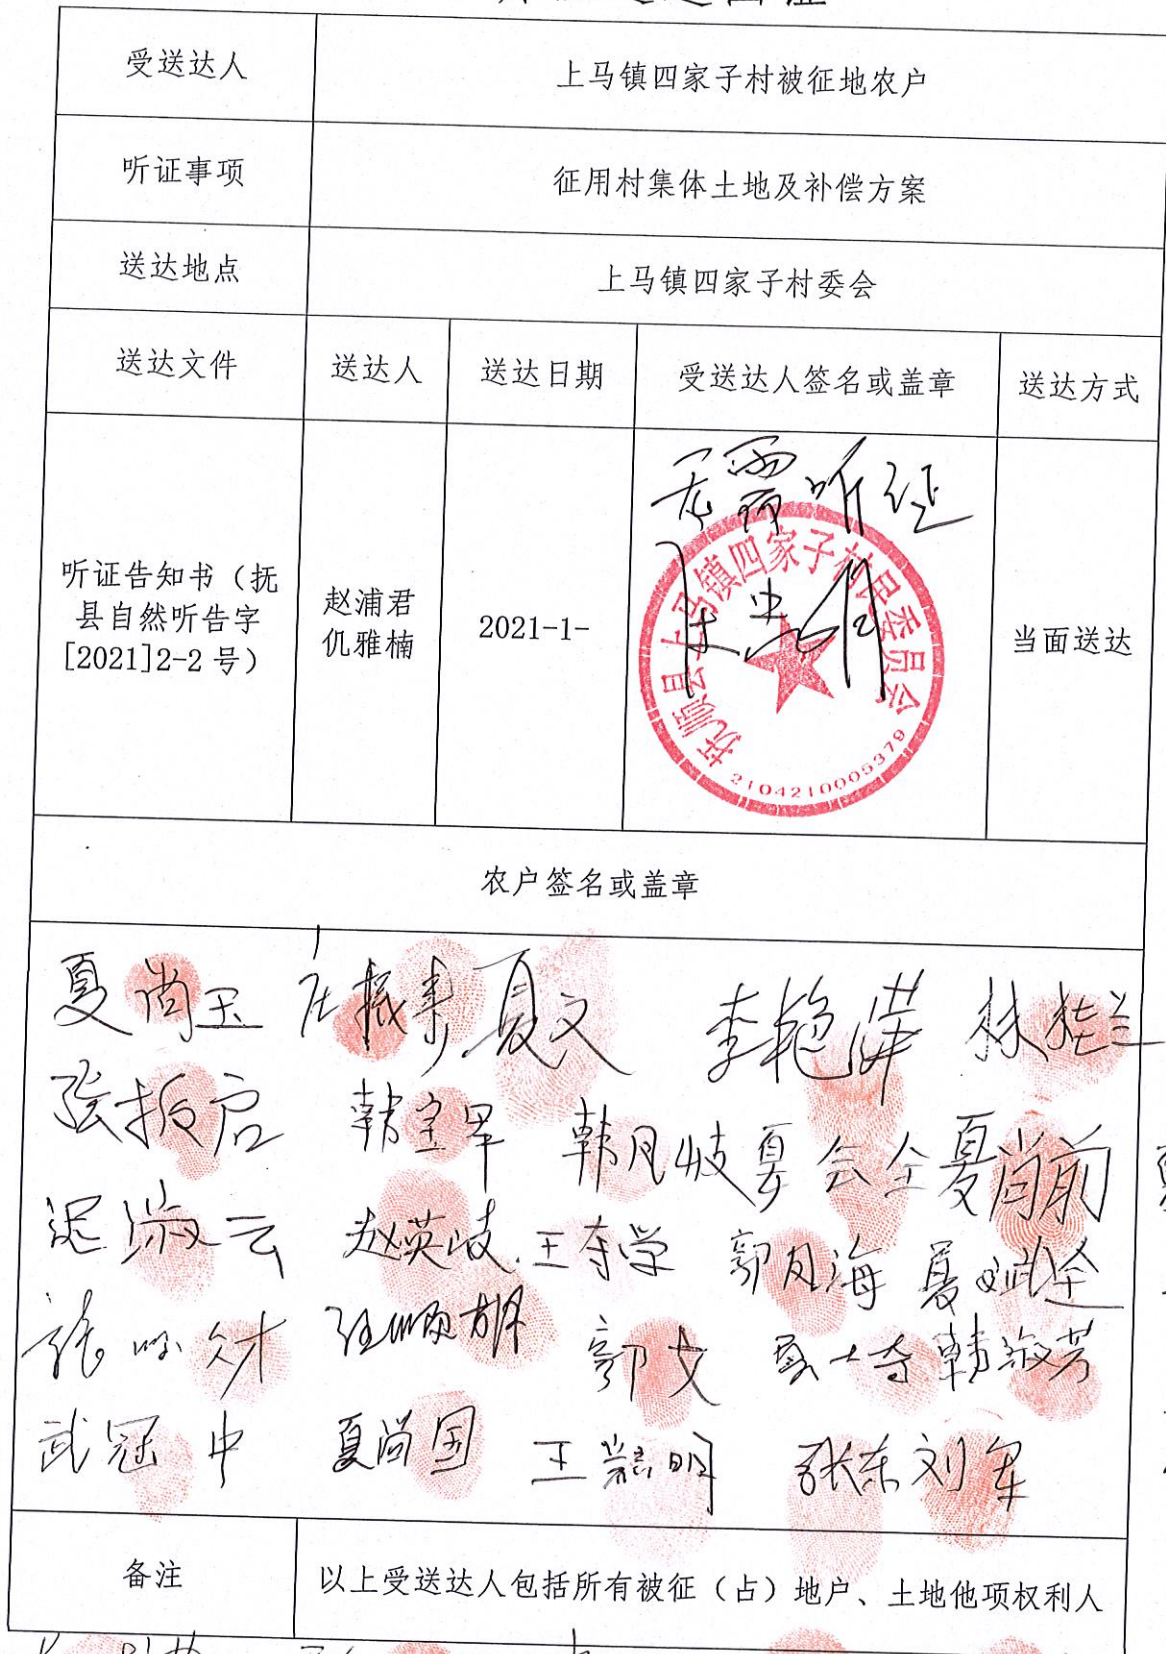 受送达人 上马镇四家子村被征地农户
听证事项 征用村集体土地及补偿方案
送达地点 上马镇四家子村委会
送达文件 送达人 送达日期 受送达人签名或盖章 送达方式
无需听证
听证告知书（抚
县自然听告字
[2021]2-2号）
赵浦君
仉雅楠
2021-1-
抚顺县上马镇四家子村民委员会
2104210005379
当面送达
农户签名或盖章
夏尚玉 夏文 李艳萍 林桂兰
张振启 韩宝军 韩凤岐 夏会全 夏尚前
迟淑云 赵英岐 王奇学 郭凤海 夏斌全
张 郭文 韩淑芳
武冠中 夏尚国 王嵩明 张东 刘军
备注 以上受送达人包括所有被征（占）地户、土地他项权利人